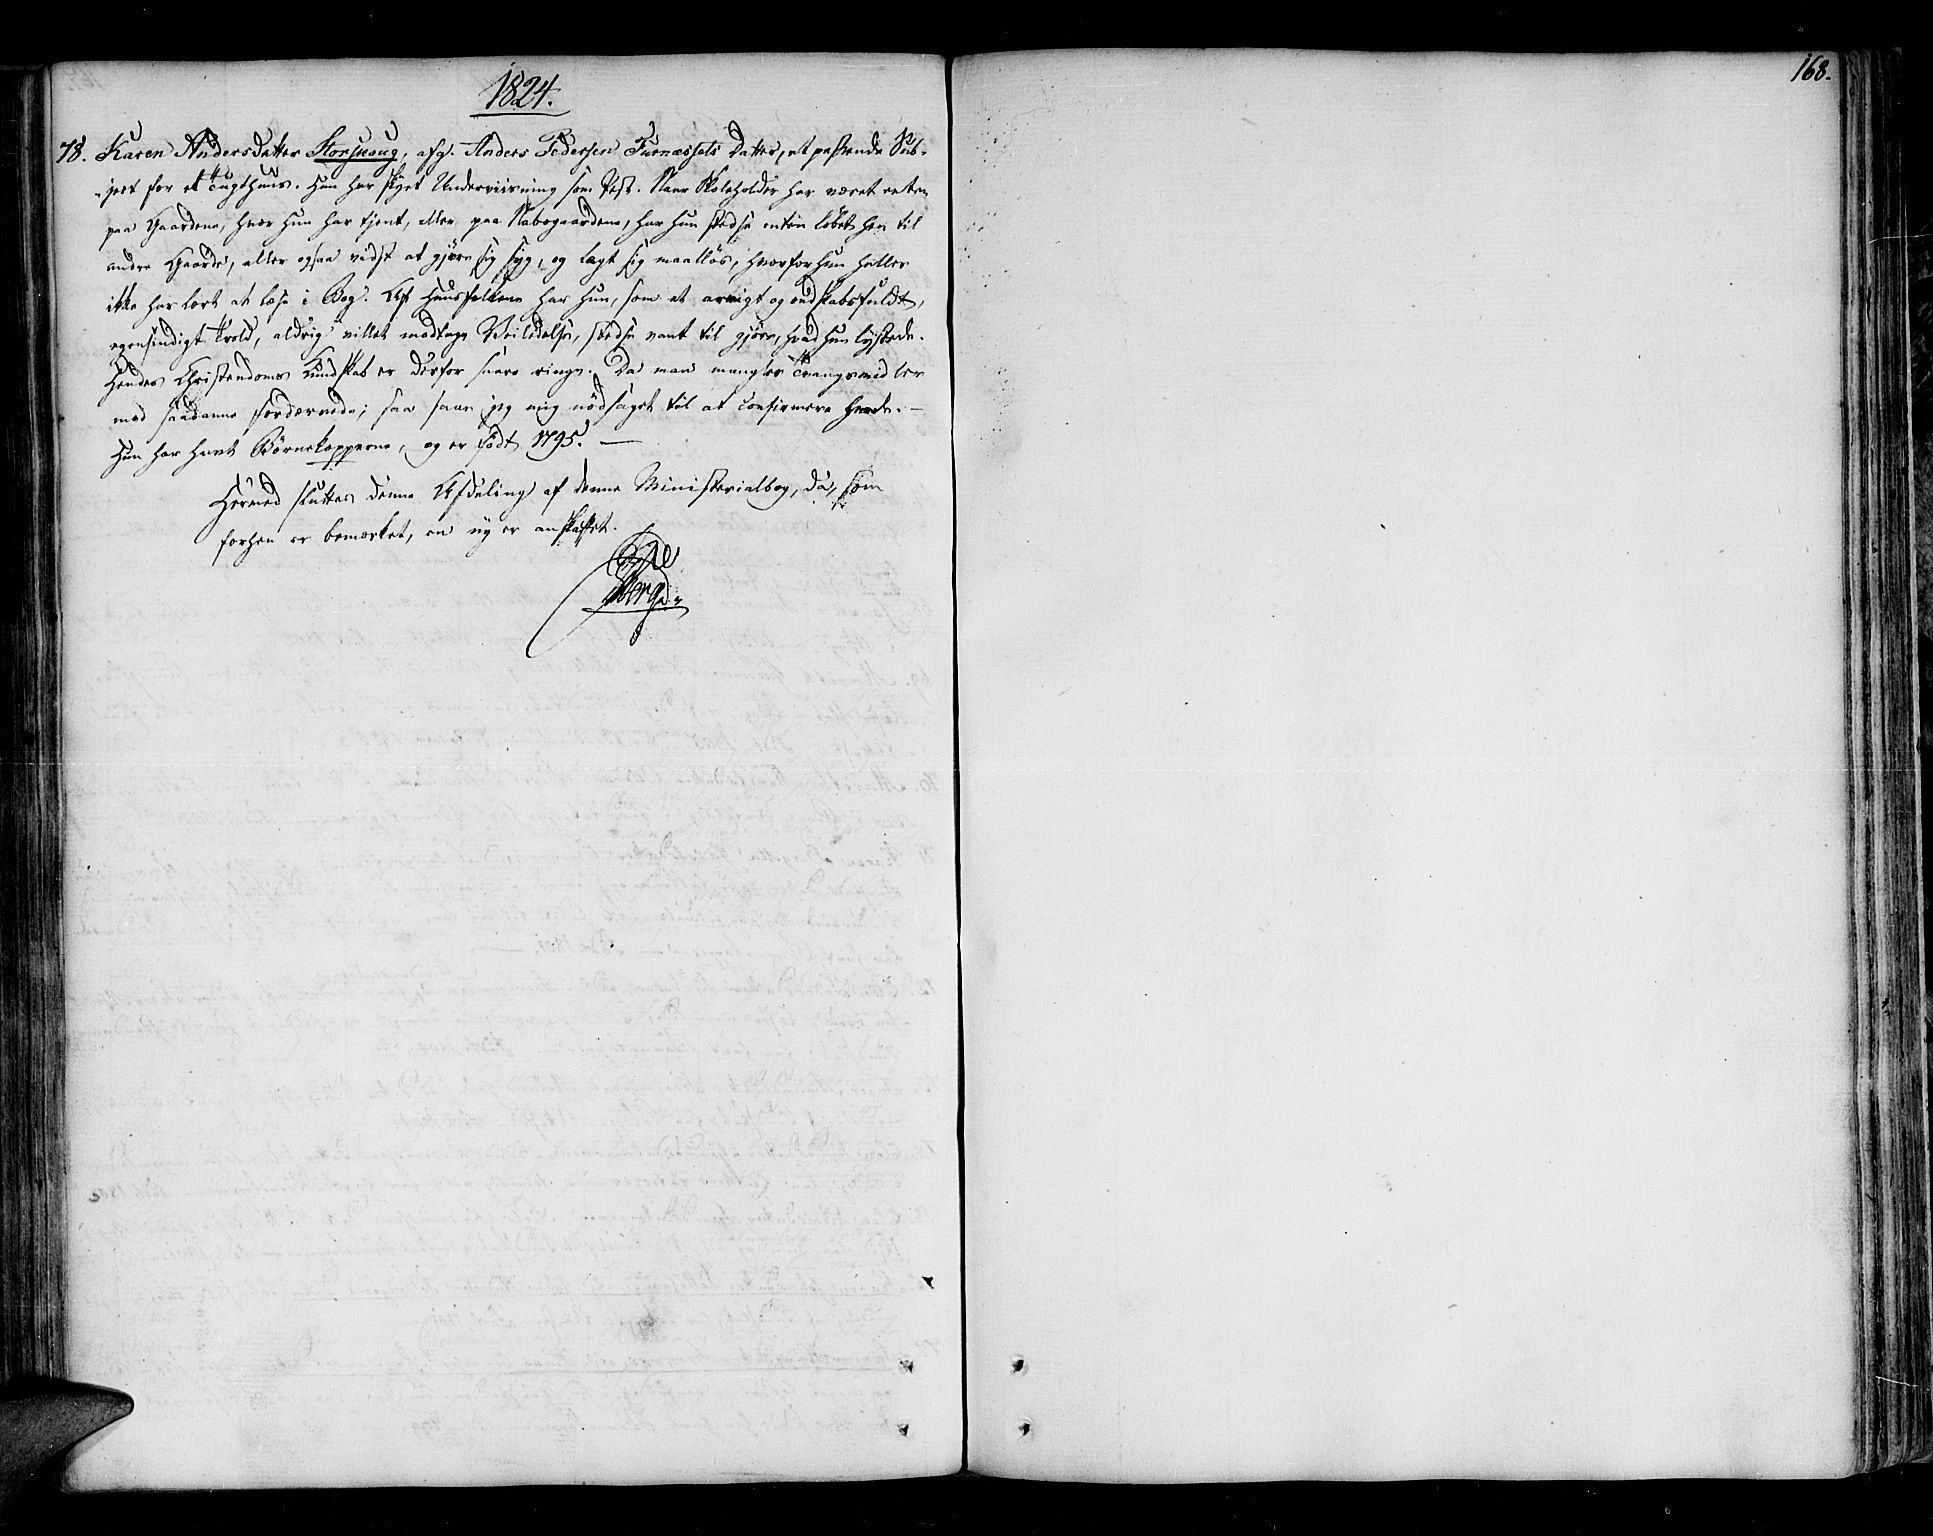 1824.
168.
78. Karen Andersdatter Storhoug, afg. Anders Pedersen Furnæssets Datter, et passende Sub-
-ject for et Tugthuus. Hun har skyet Underviisning som Pest. Naar Skoleholder har været enten
paa Gaardene, hvor hun har tjent, eller paa Nabogaardene, har hun stedse enten løbet hen til
andre Gaarde, eller ogsaa vidst at gjøre sig syg, og lagt sig maalløs, hvorfor hun heller
ikke har lært at læse i Bog. Af Huusfolkene har hun, som et arrigt og ondskabsfuldt,
egensindigt Trold, aldrig villet modtage Veiledelse, stedse vant til gjøre, hvad hun lystede.
Hendes Christendoms Kundskab er derfor saare ringe. Da man mangler Tvangsmidler
mod saadanne fordærvede; saa saae jeg mig nødsaget til at confirmere hende. —
Hun har havt Børnekopperne, og er født 1795. —
Hermed sluttes denne Afdeling af denne Ministerialbog, da, som
forhen er bemærket, en ny er anskaffet.
Berg